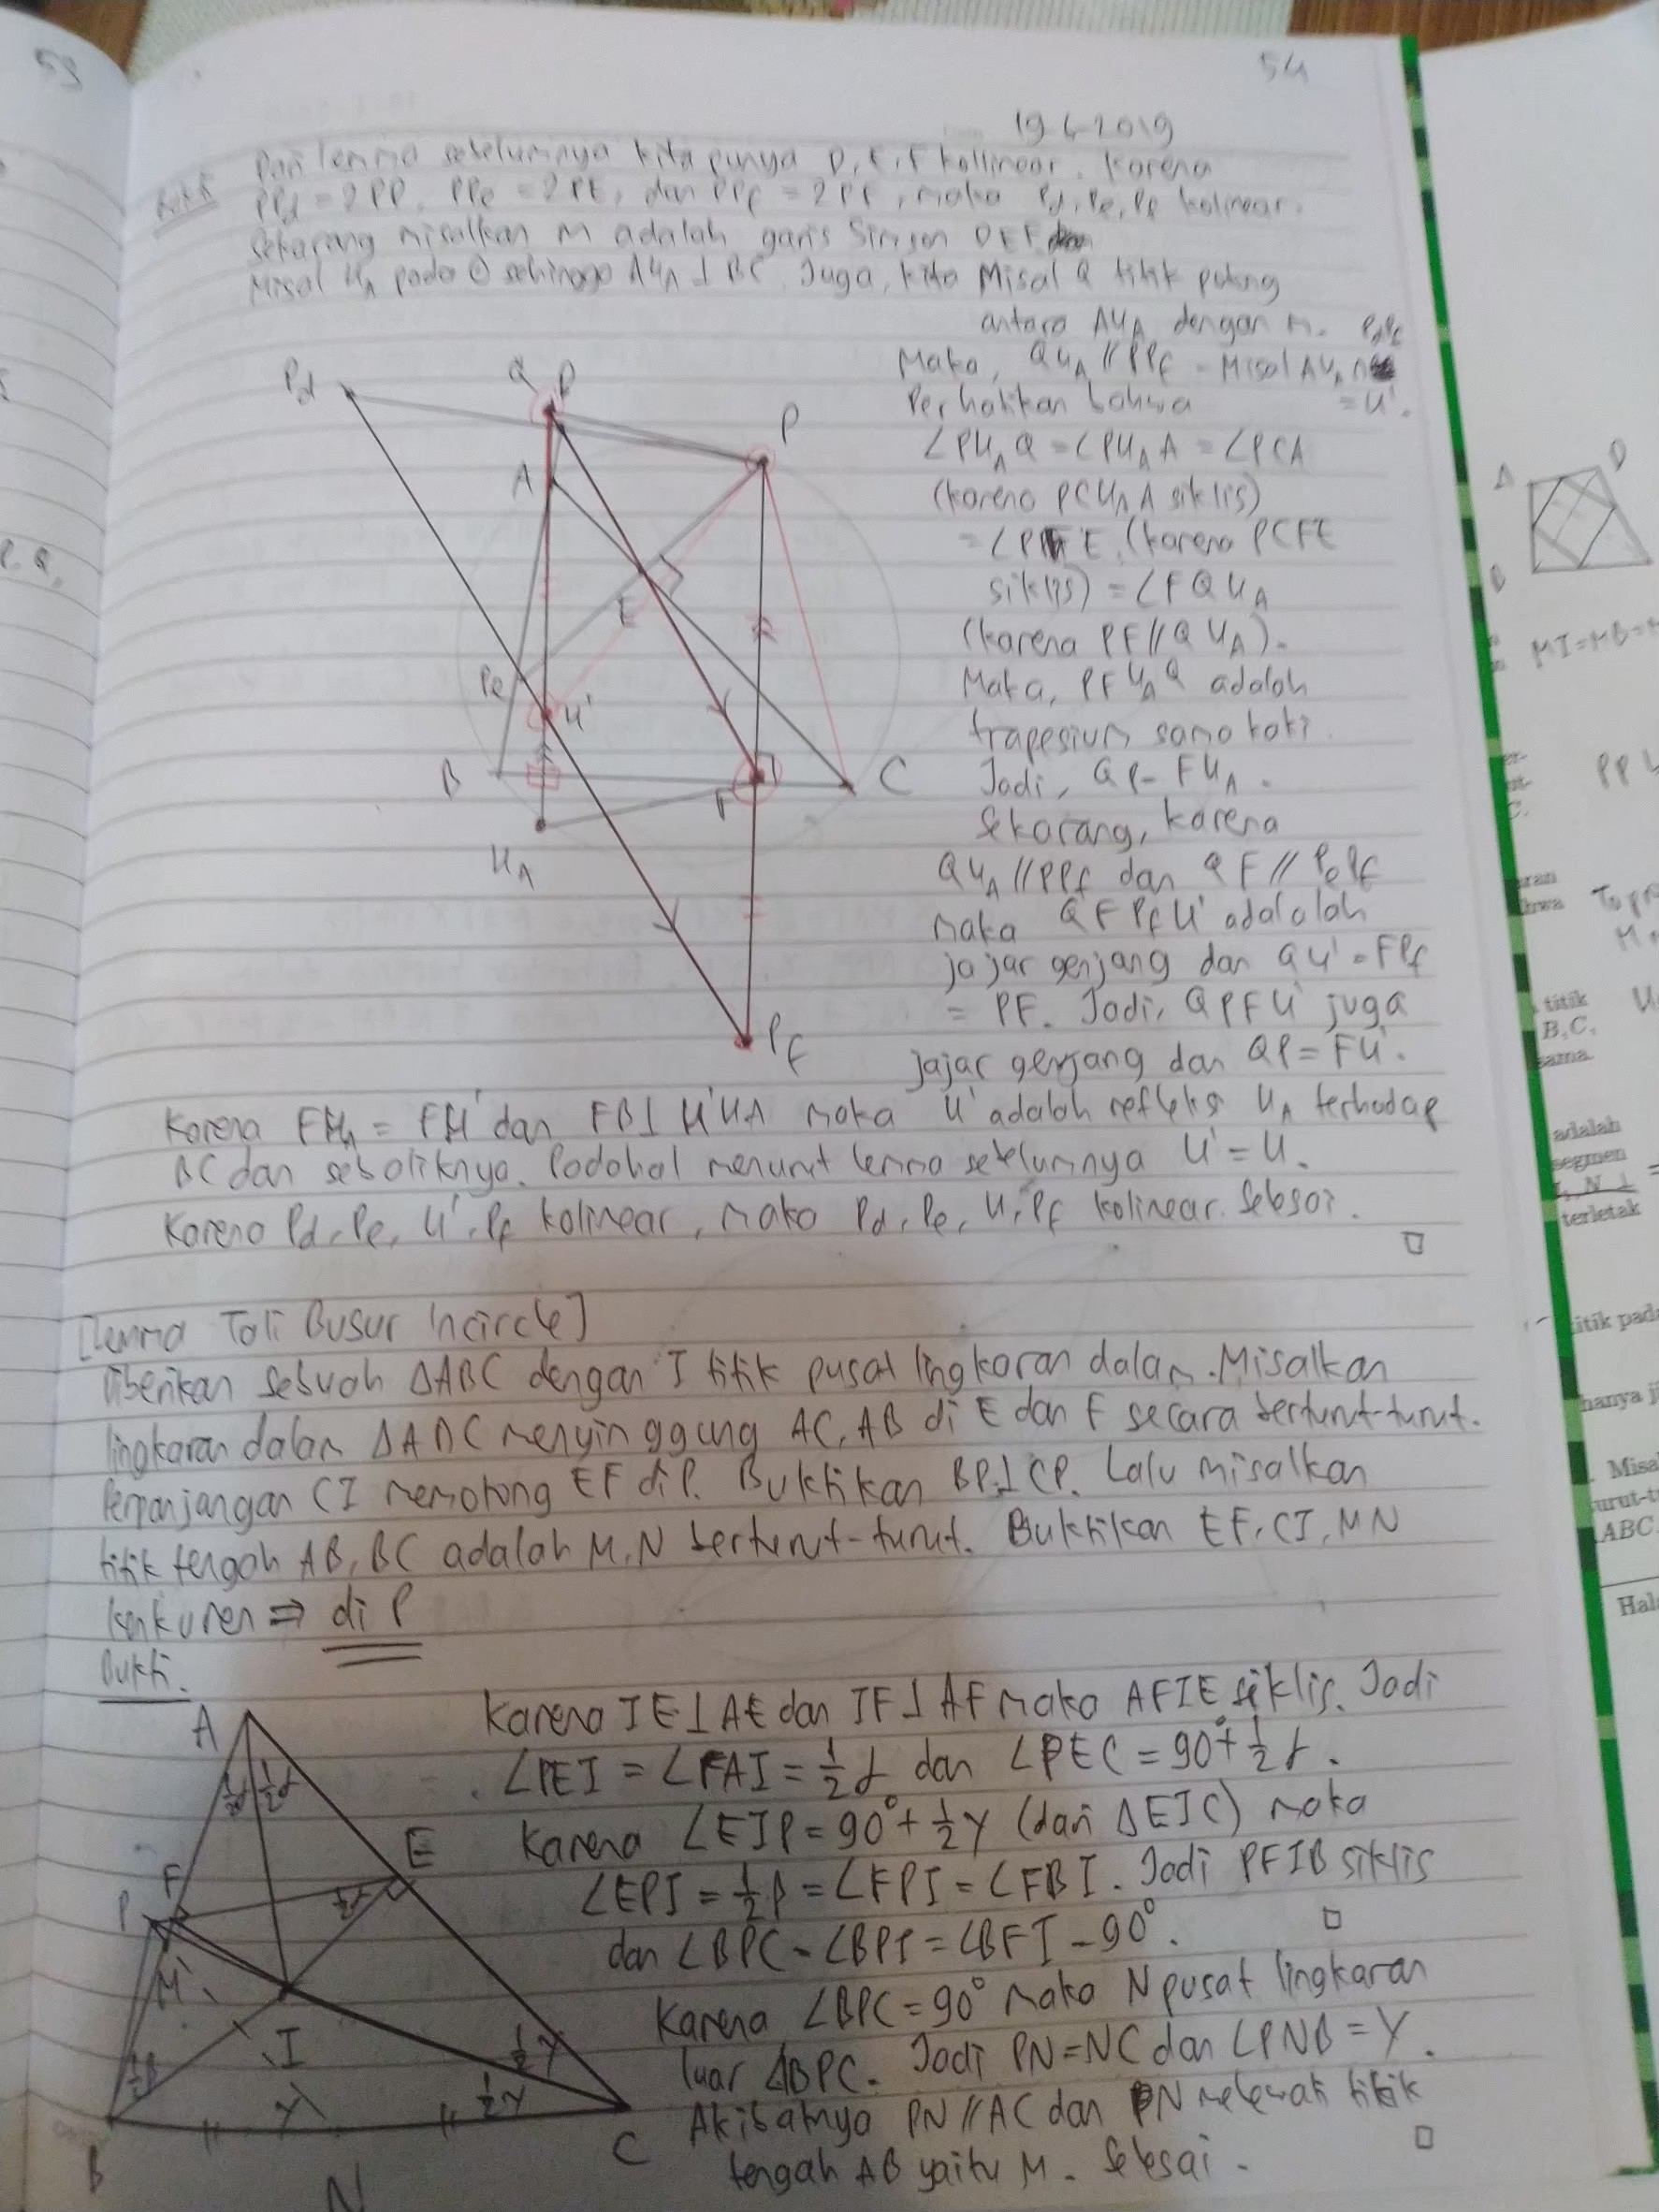 53
54
19-4-2019
Bukti Dari lemma sebelumnya kita punya D, E, F kollinear. Karena
PPd = 2PD, PPe = 2PE, dan PPf = 2PF, maka Pd, Pe, Pf kolinear.
Sekarang misalkan m adalah garis Simson DEF
Misal HA pada sehingga AHA ⊥ BC. Juga, kita Misal Q titik potong
antara AHA dengan m.
Maka, QHA // PPf - Misal AHA ∩ PdPf
Perhatikan bahwa = H'.
∠PHAQ = ∠PHAA = ∠PCA
(karena PCHAA siklis)
= ∠PFE (karena PCFE
siklis) = ∠FQHA
(karena PF // QHA).
Maka, PFHAQ adalah
trapesium sama kaki.
Jadi, QP = FHA.
Sekarang, karena
QHA // PPf dan QF // PePf
maka QFPfH' adalalah
jajar genjang dan QH' = FPf
= PF. Jadi, QPFH' juga
jajar genjang dan QP = FH'.
Karena FHA = FH' dan FB ⊥ H'HA maka H' adalah refleksi HA terhadap
BC dan sebaliknya. Padahal menurut lemma sebelumnya H' = H.
Karena Pd, Pe, H', Pf kolinear, maka Pd, Pe, H, Pf kolinear. Selesai.
□
Pd
Q
D
P
A
E
Pe
H'
B
F
C
HA
Pf
[Lemma Tali Busur Incircle]
Diberikan sebuah ΔABC dengan I titik pusat lingkaran dalam. Misalkan
lingkaran dalam ΔABC menyinggung AC, AB di E dan F secara berturut-turut.
Perpanjangan CI memotong EF di P. Buktikan BP ⊥ CP. Lalu misalkan
titik tengah AB, BC adalah M, N berturut-turut. Buktikan EF, CI, MN
konkuren ⇒ di P
Bukti.
Karena IE ⊥ AE dan IF ⊥ AF maka AFIE siklis. Jadi
∠PEI = ∠FAI = ½α dan ∠PEC = 90° + ½α.
Karena ∠EIP = 90° + ½γ (dari ΔEIC) maka
∠EPI = ½β = ∠FPI = ∠FBI. Jadi PFIB siklis
dan ∠BPC = ∠BPI = ∠BFI = 90°.
□
Karena ∠BPC = 90° maka N pusat lingkaran
luar ΔBPC. Jadi PN = NC dan ∠PNB = γ.
Akibatnya PN // AC dan PN melewati titik
tengah AB yaitu M. Selesai.
□
A
½α
½α
E
F
P
½α
M
I
½β
½γ
½γ
γ
B
N
C
A
D
B
P, Q,
MI = MB = M
titik
B, C,
sama.
adalah
segmen
terletak
titik pada
hanya ji
Misa
urut-t
ABC.
Hala